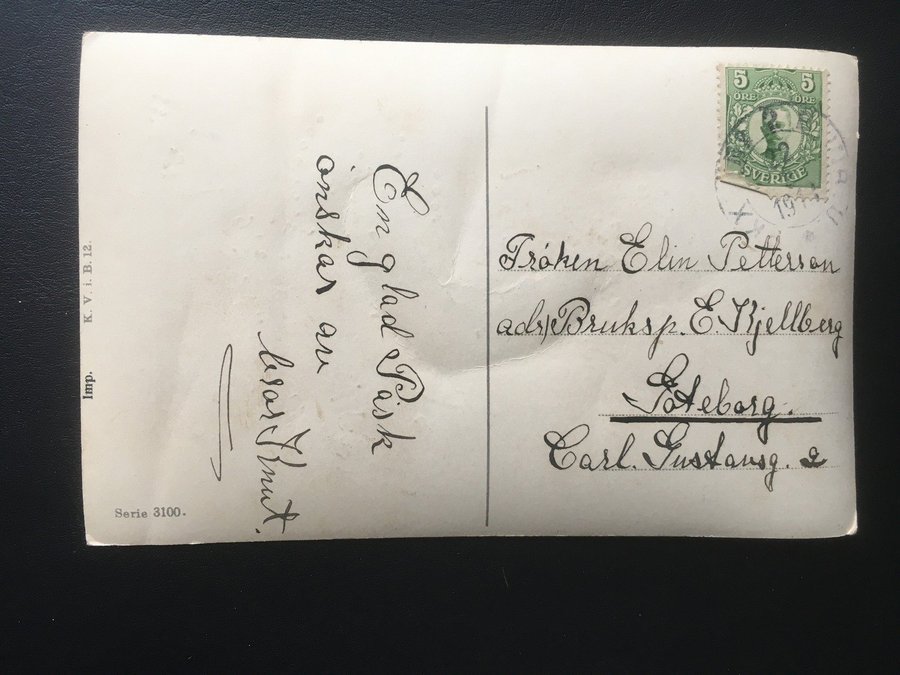 En glad Påsk
önskas av
bror Knut.
5 5
ÖRE ÖRE
SVERIGE
Fröken Elin Petterson
adr/Bruksp. E. Kjellberg
Göteborg.
Carl. Gustavsg. 2
Imp. K. V. i. B. 12.
Serie 3100.